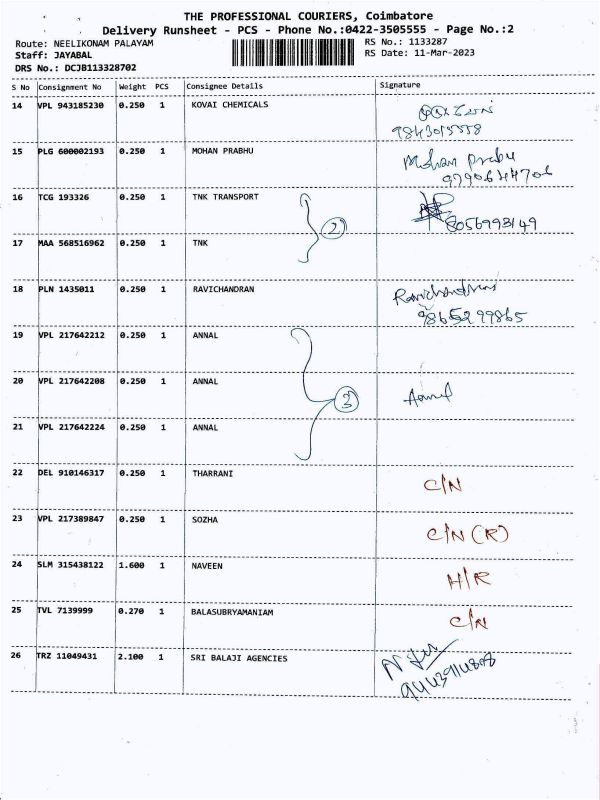 THE PROFESSIONAL COURIERS, Coimbatore
Delivery Runsheet - PCS - Phone No.:0422-3505555 - Page No.:2
Route: NEELIKONAM PALAYAM
Staff: JAYABAL
DRS No.: DCJB113328702
RS No.: 1133287
RS Date: 11-Mar-2023
S No Consignment No Weight PCS Consignee Details Signature
14 VPL 943185230 0.250 1 KOVAI CHEMICALS
15 PLG 600002193 0.250 1 MOHAN PRABHU Mohan Prabu
16 TCG 193326 0.250 1 TNK TRANSPORT
2
8056993149
17 MAA 568516962 0.250 1 TNK
18 PLN 1435011 0.250 1 RAVICHANDRAN Ravichandran
9865299865
19 VPL 217642212 0.250 1 ANNAL
20 VPL 217642208 0.250 1 ANNAL
3
21 VPL 217642224 0.250 1 ANNAL
22 DEL 910146317 0.250 1 THARRANI C/N
23 VPL 217389847 0.250 1 SOZHA C/N (R)
24 SLM 315438122 1.600 1 NAVEEN H/R
25 TVL 7139999 0.270 1 BALASUBRYAMANIAM C/N
26 TRZ 11049431 2.100 1 SRI BALAJI AGENCIES